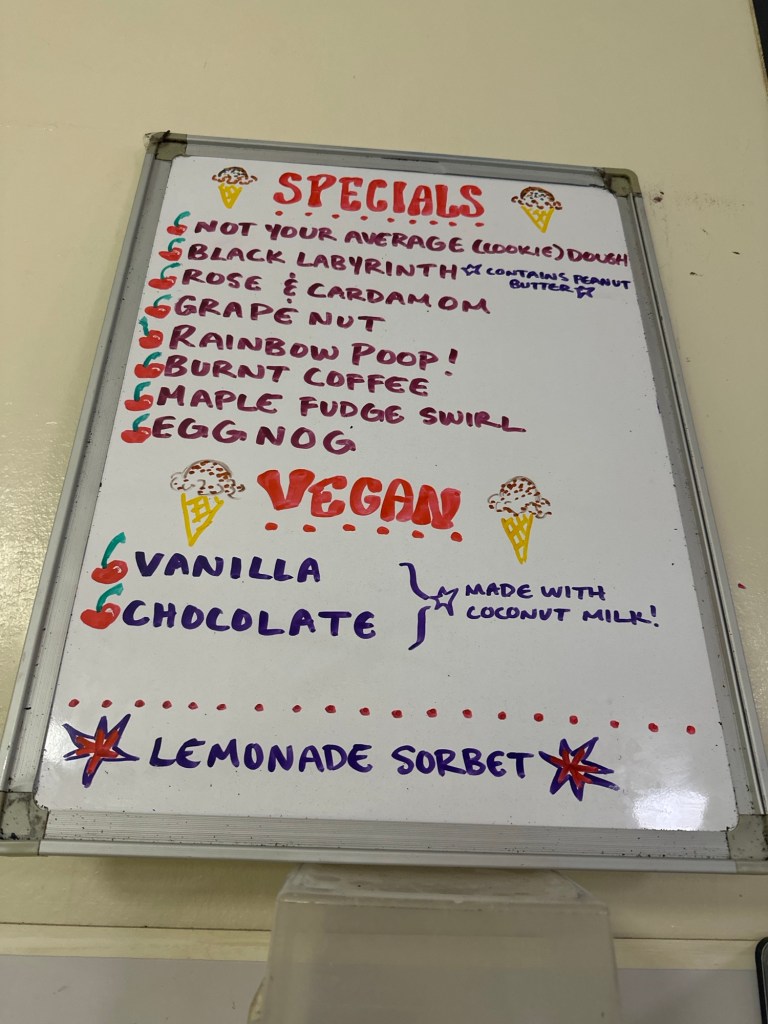 SPECIALS
NOT YOUR AVERAGE (COOKIE) DOUGH
BLACK LABYRINTH ☆ CONTAINS PEANUT
BUTTER ☆
ROSE & CARDAMOM
GRAPE NUT
RAINBOW POOP!
BURNT COFFEE
MAPLE FUDGE SWIRL
EGGNOG
VEGAN
VANILLA
CHOCOLATE
} ☆ MADE WITH
COCONUT MILK!
LEMONADE SORBET